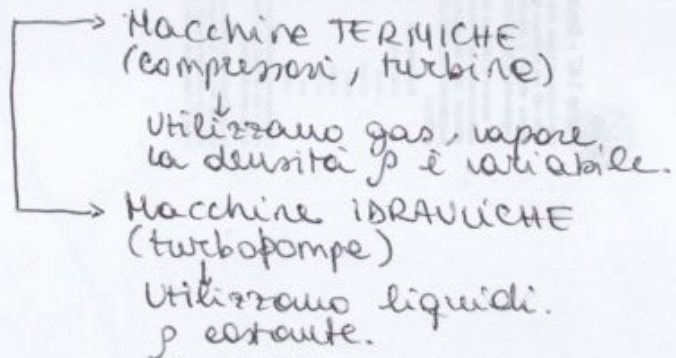 Macchine TERMICHE
(compressori, turbine)
Utilizzano gas, vapore
la densità ρ è variabile.
Macchine IDRAULICHE
(turbopompe)
Utilizzano liquidi.
ρ costante.